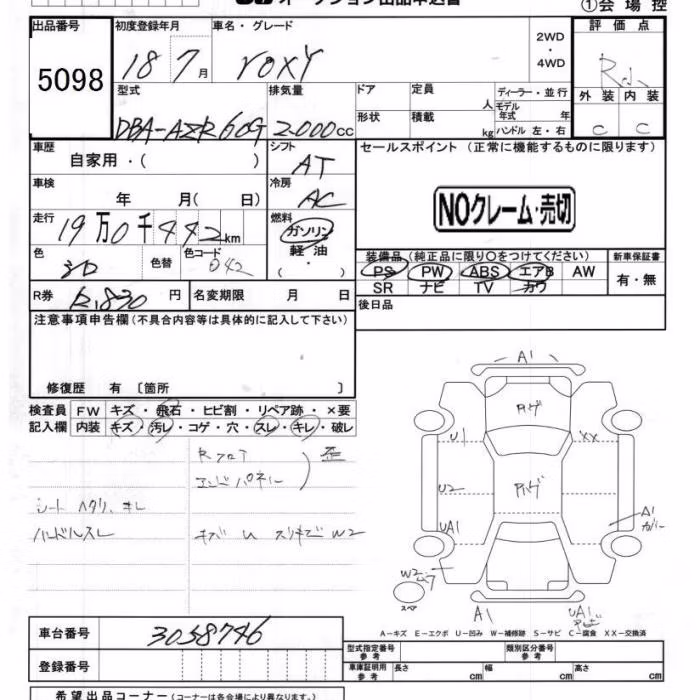 オークション出品申込書
①会場控
出品番号
5098
初度登録年月
18 7月
車名・グレード
VOXY
2WD
・
4WD
評価点
R小
外装 内装
C C
型式
DBA-AZR60G
排気量
2.000cc
ドア
定員
人
ディーラー・並行
モデル年式 年
形状
積載
kg
ハンドル 左・右
車歴
自家用・( )
シフト
AT
セールスポイント (正常に機能するものに限ります)
車検
年 月( 日)
冷房
AC
NOクレーム・売切
走行
19万0千442km
燃料
ガソリン
軽油
( ・ )
色
色替
色コード
042
装備品(純正品に限り○をつけてください)
新車保証書
PS PW ABS エアB AW
SR ナビ TV カワ
有・無
R券
R.830円
名変期限 月 日
後日品
注意事項申告欄(不具合内容等は具体的に記入して下さい)
修復歴 有〔箇所 〕
検査員記入欄
FW キズ・飛石・ヒビ割・リペア跡・×要
内装 キズ・汚レ・コゲ・穴・スレ・キレ・破レ
Rフロア
エンドパネル
歪
シート ヘタリ、キレ
ハンドルスレ
キズ U スリキズ W2
A1
ハゲ
U1
XX
U2
ハゲ
UA1
A1
カバー
W2
スペア
A1
UA1
A-キズ E-エクボ U-凹み W-補修跡 S-サビ C-腐食 XX-交換済
車台番号
3058746
登録番号
型式指定番号参考
類別区分番号参考
車庫証明用参考
長さ cm
幅 cm
高さ cm
希望出品コーナー(コーナーは各会場により異なります。)